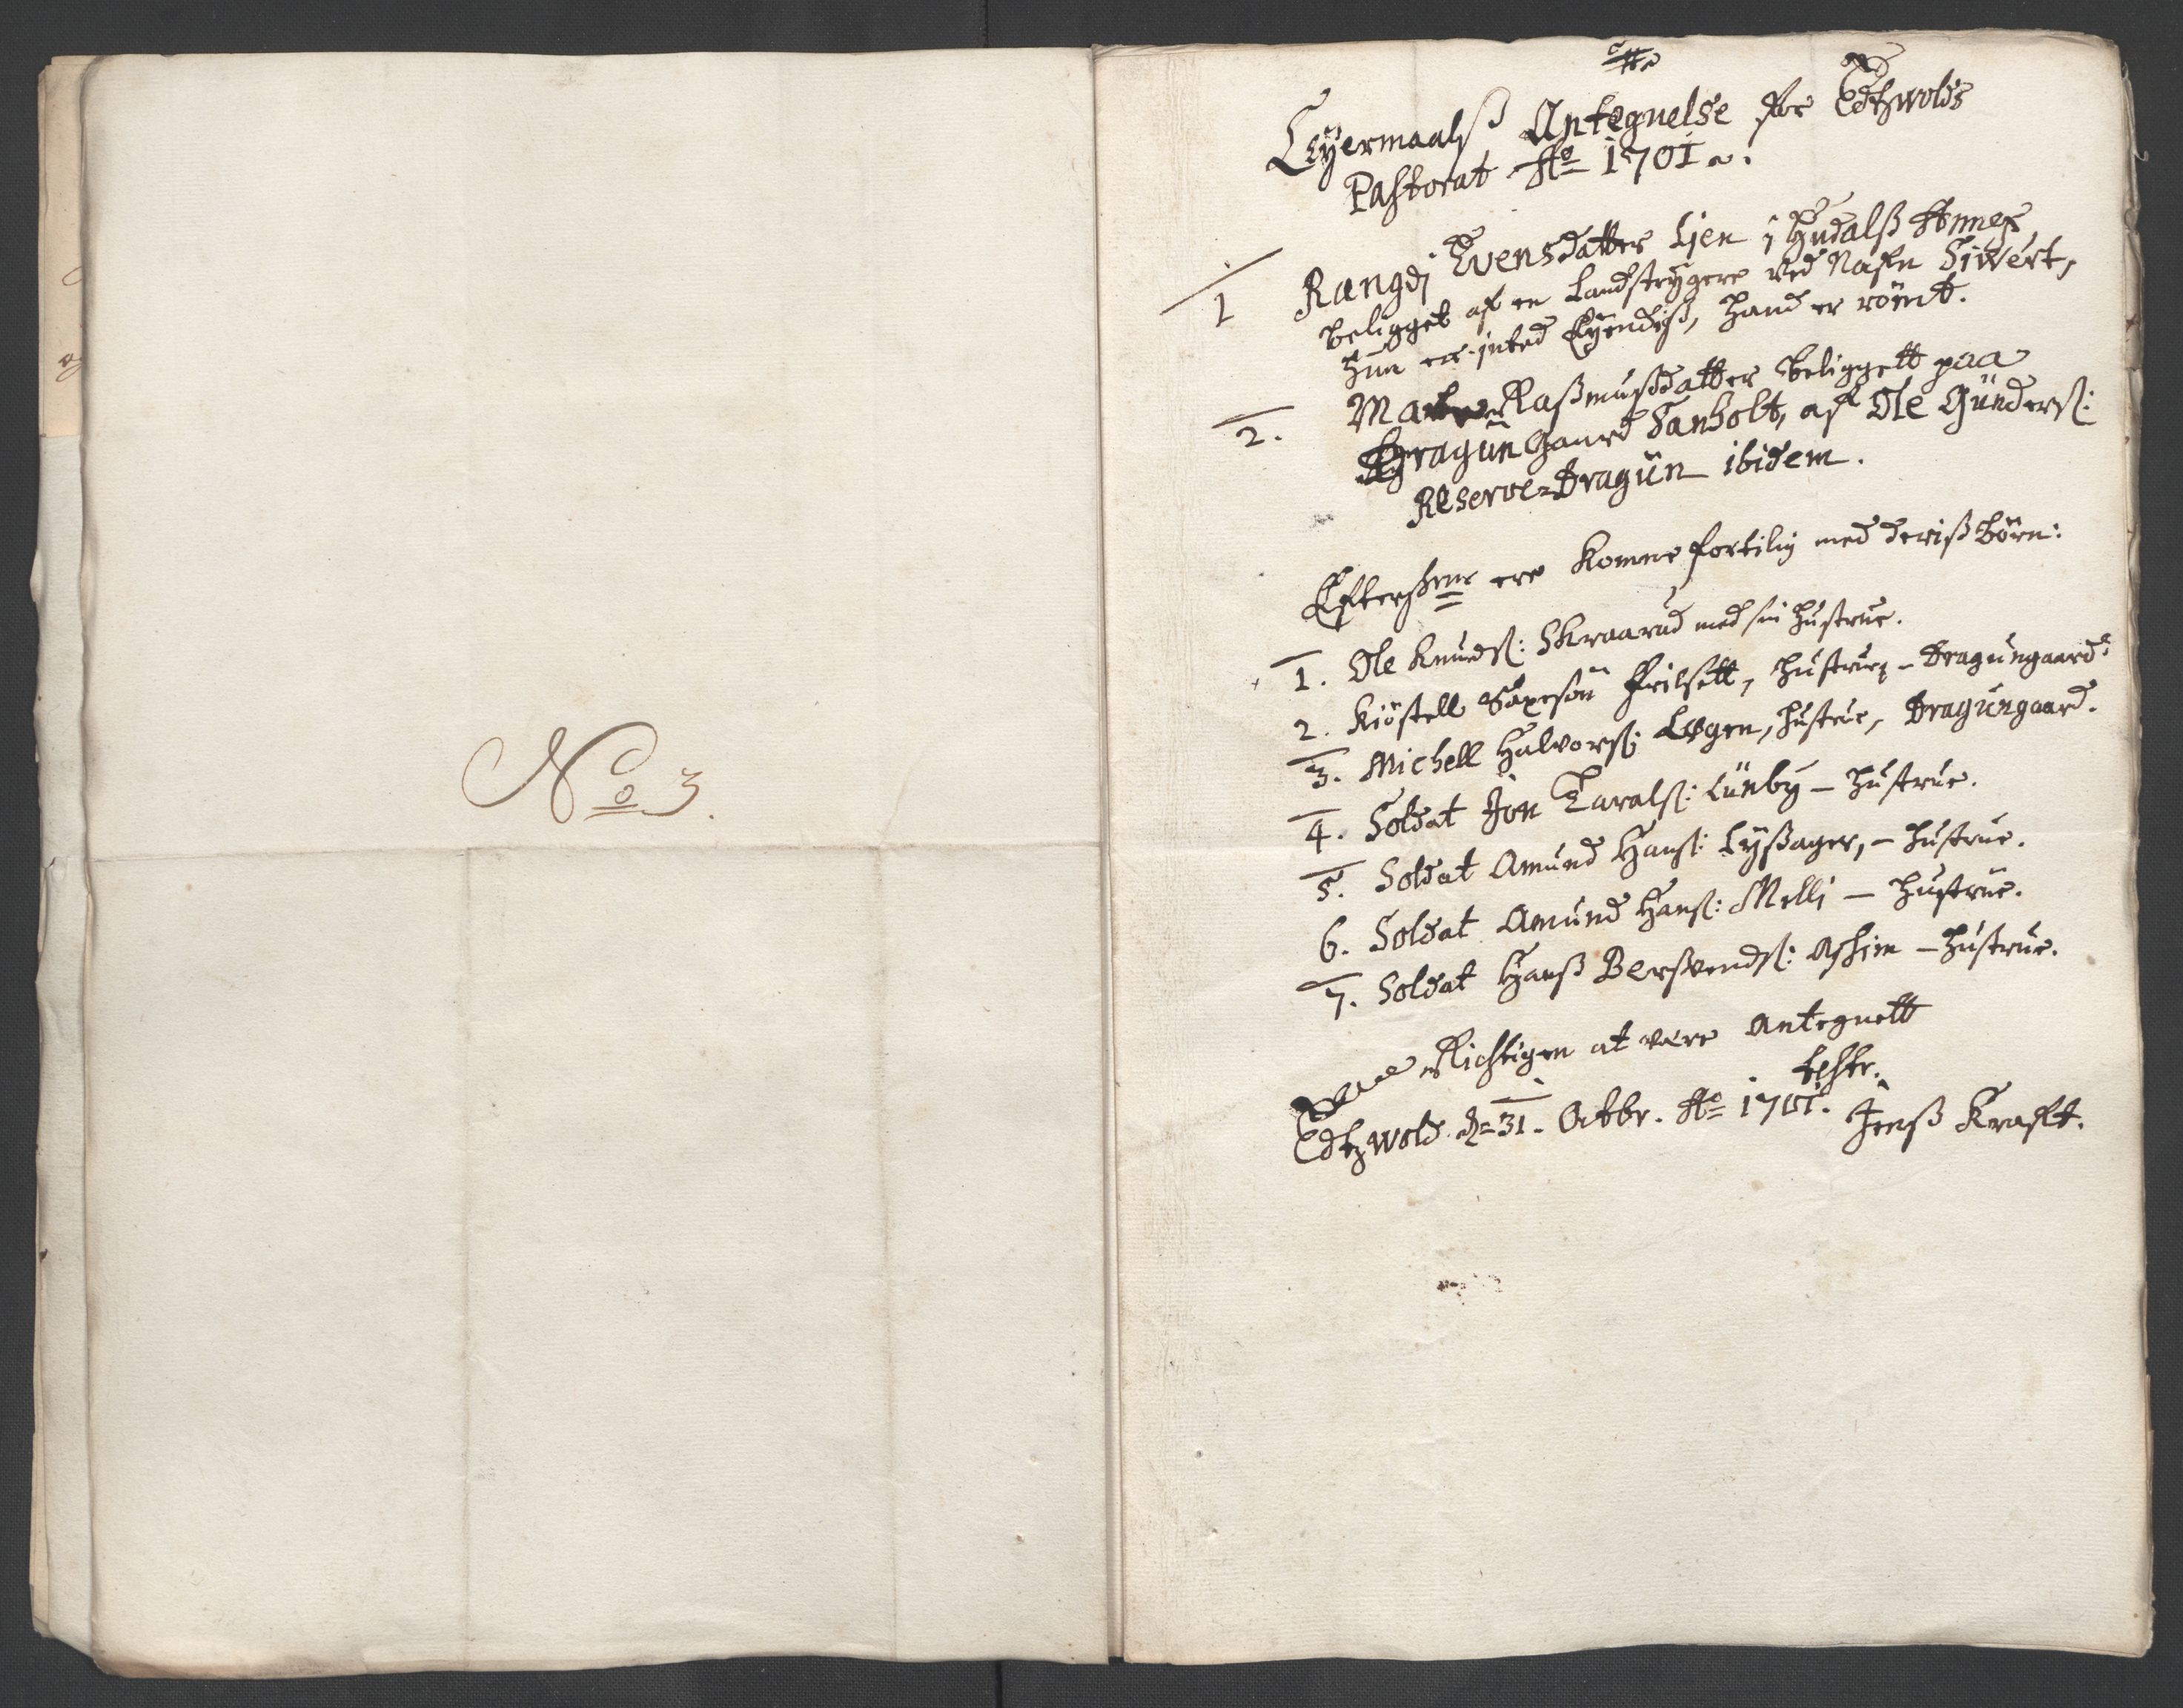 No 3.
Leÿermaalß Antegnelse for Edtzwolds
Pastorat Ao 1701.
1 Rangdj Evensdatter Lien j Hudalß Annex,
beligget af en Landstrÿgere ved Nafn Siwert,
hun er jnted Eÿendiß, hand er römt.
2. Raßmußdatter beliggett paa
Dragun gaard Tanholt, af Ole Gunderß:
Reserve-Dragun ibidem.
Efterßne ere Komne fortilig med deriß börn:
1. Ole Knudß: Skraarud med sin hustrue.
2. Kiöstell Saxesön Frilsett, hustrue - Dragungaard:
3. Michell Halvorß: Lægen, hustrue, Dragungaard.
4. Soldat Jon Taralß: Lünbÿ - hustrue.
5. Soldat Amund Hanß: Lÿßager, - hustrue.
6. Soldat Amund Hanß: Melli - hustrue.
7. Soldat Hanß Berßvendß: Aßhim - hustrue.
Richtigen at være antegnett
testr.
Edtzwold d. 31. Octbr. Ao 1701. Jenß Kraft.